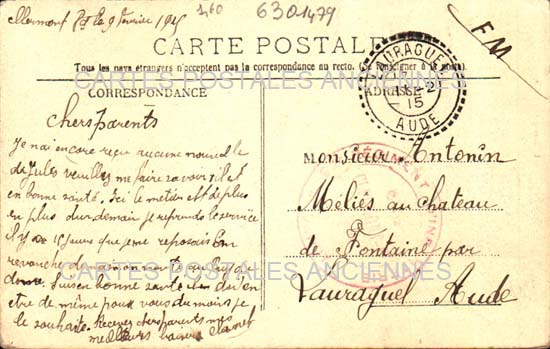 Clermont Fd le 9 février 1915
1460
6301479
FM
CARTE POSTALE
Tous les pays étrangers n'acceptent pas la correspondance au recto. (Se renseigner à la poste).
CORRESPONDANCE
ADRESSE
LAURAGUEL
15
AUDE
CARTES POSTALES ANCIENNES
chers parents
Je n'ai encore reçu aucune nouvelle
de Jules veuillez me faire savoir s'il est
en bonne santé. Ici le métier est de plus
en plus dur demain je reprends le service
il y a 15 jours que je me reposais En
revanche
Suis en bonne santé
etre de même pour vous du moins je
le souhaite. Recevez chers parents mes
meilleurs baisers
Monsieur Antonin
Meliés au chateau
de Fontaine par
Lauraguel Aude
CARTES POSTALES ANCIENNES